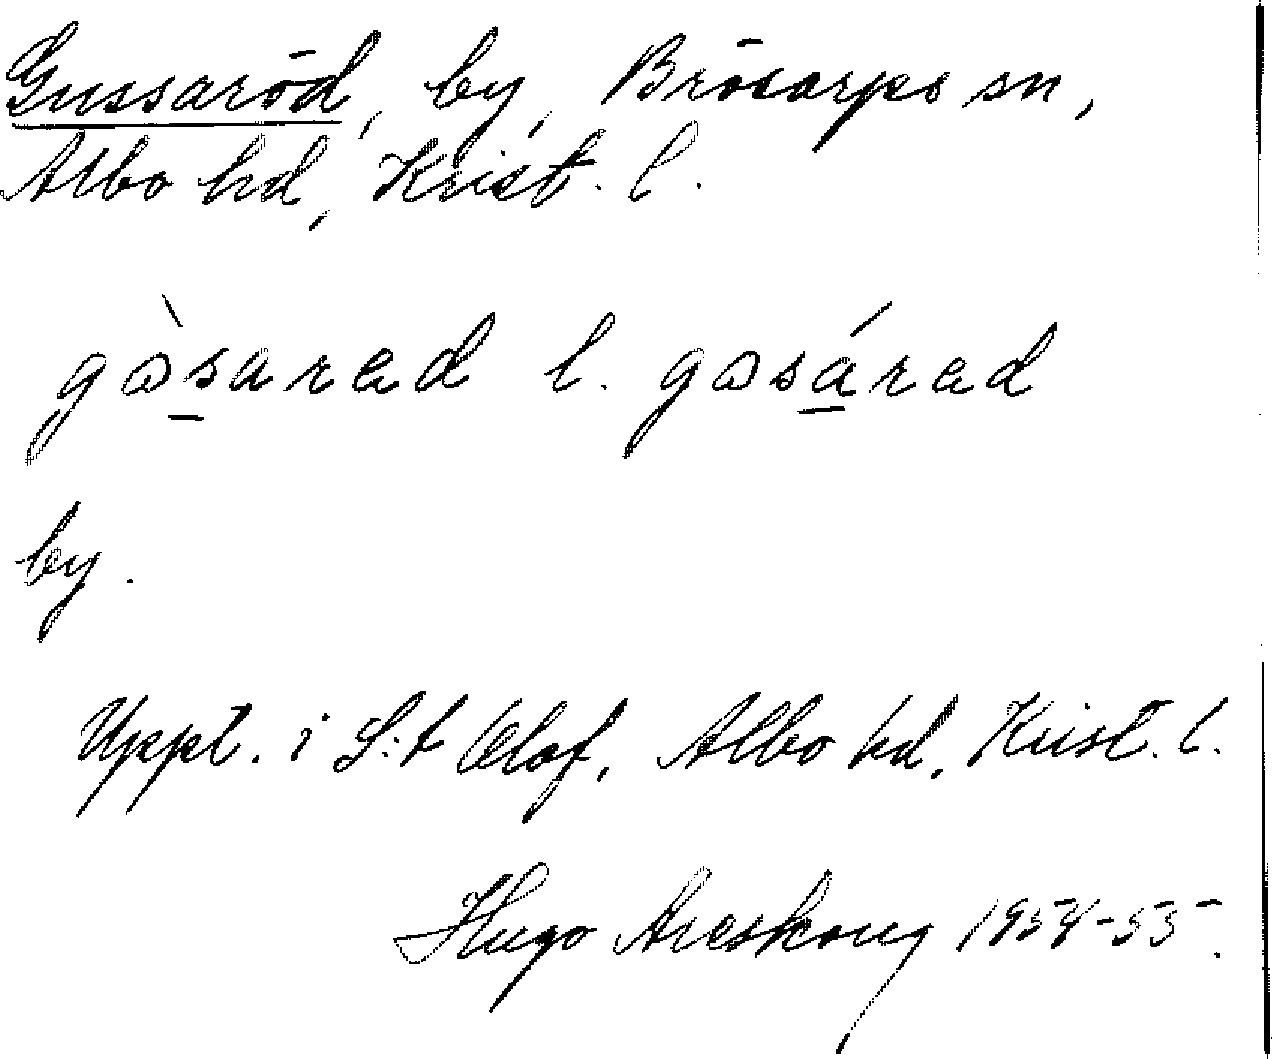 Gussaröd, by, Brösarps sn,
Albo hd, Krist. l.
gɷ̀s̲arad l. gɷsá̲rad
by.
Uppt. i S:t Olof, Albo hd, Krist. l.
Hugo Areskoug 1954-55.